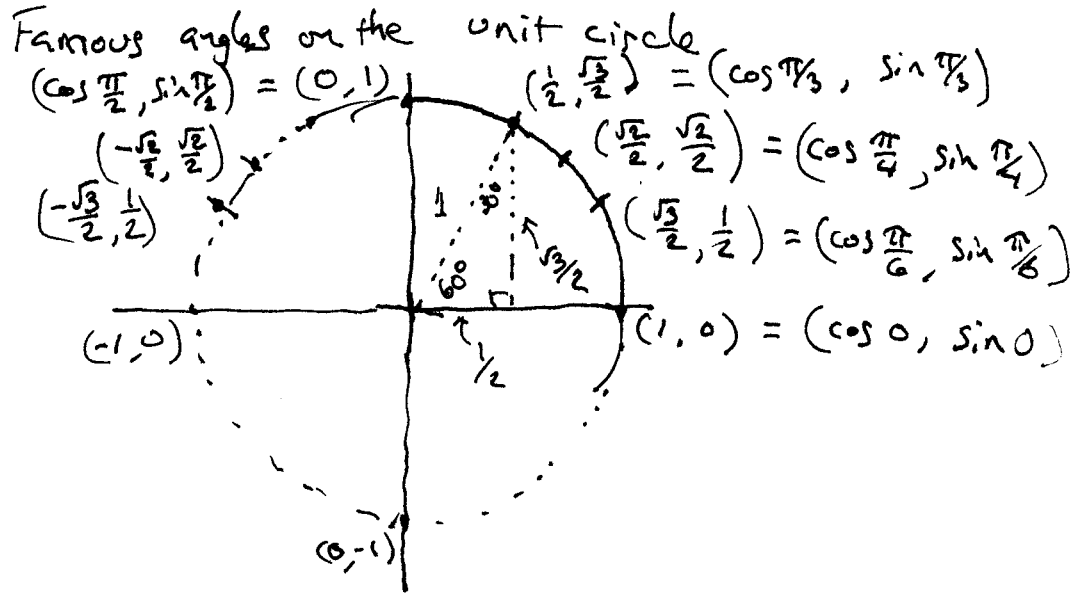 Famous angles on the unit circle
(cos π/2, sin π/2) = (0, 1)
(1/2, √3/2) = (cos π/3, sin π/3)
(-√2/2, √2/2)
(√2/2, √2/2) = (cos π/4, sin π/4)
(-√3/2, 1/2)
1
30°
(√3/2, 1/2) = (cos π/6, sin π/6)
√3/2
60°
(-1, 0)
(1, 0) = (cos 0, sin 0)
1/2
(0, -1)